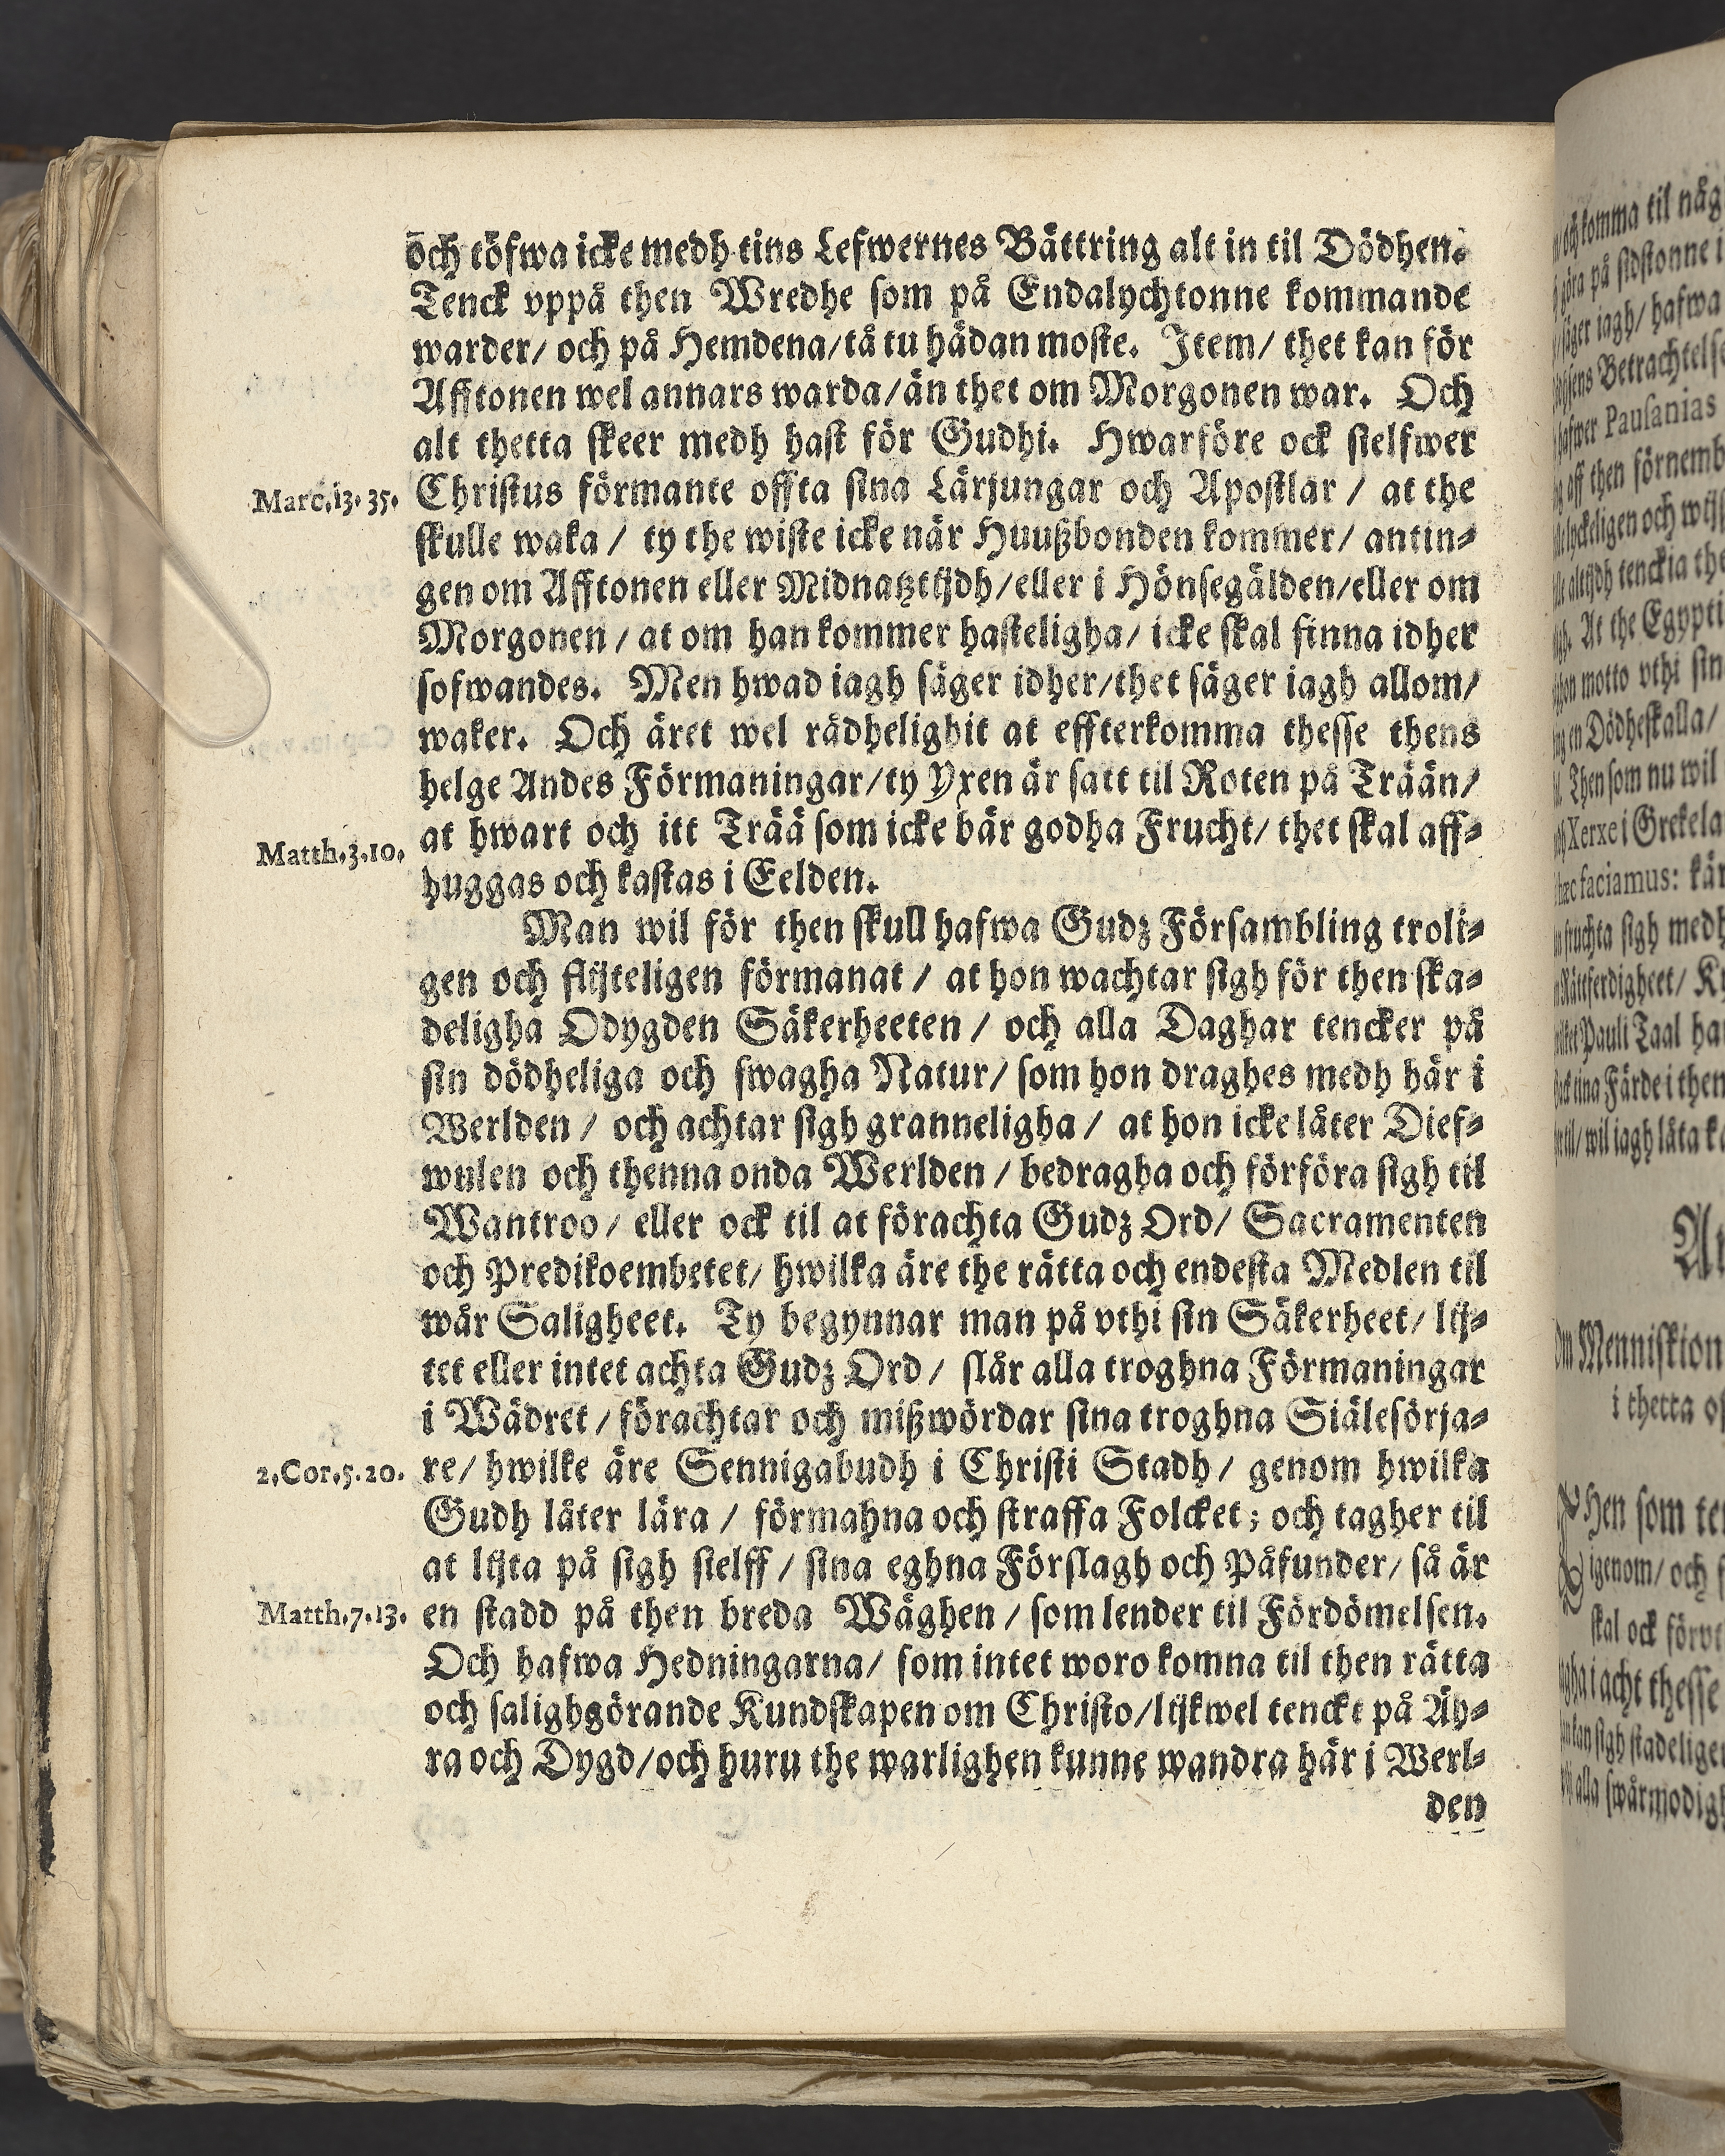 och töfwa icke medh tins Lefwernes Bättring alt in til Dödhen.
Tenck vppå then Wredhe som på Endalychtonne kommande
warder/ och på Hemdena/ tå tu hädan moste. Item/ thet kan för
Afftonen wel annars warda/ än thet om Morgonen war. Och
alt thetta skeer medh hast för Gudhi. Hwarföre ock sielfwer
Marc.13.35.
Christus förmante offta sina Lärjungar och Apostlar / at the
skulle waka / ty the wiste icke när Huußbonden kommer/ antin-
gen om Afftonen eller Midnatztijdh/ eller i Hönsegälden/ eller om
Morgonen / at om han kommer hasteligha/ icke skal finna idher
sofwandes. Men hwad iagh säger idher/ thet säger iagh allom/
waker. Och äret wel rådhelighit at effterkomma thesse thens
helge Andes Förmaningar/ ty Yxen är satt til Roten på Trään/
Matth.3.10.
at hwart och itt Trää som icke bär godha Frucht/ thet skal aff-
huggas och kastas i Eelden.
Man wil för then skull hafwa Gudz Försambling troli-
gen och flijteligen förmanat / at hon wachtar sigh för then ska-
deligha Odygden Säkerheeten / och alla Daghar tencker på
sin dödheliga och swagha Natur/ som hon draghes medh här i
Werlden / och achtar sigh granneligha / at hon icke låter Dief-
wulen och thenna onda Werlden / bedragha och förföra sigh til
Wantroo / eller ock til at förachta Gudz Ord/ Sacramenten
och Predikoembetet/ hwilka äre the rätta och endesta Medlen til
wår Saligheet. Ty begynnar man på vthi sin Säkerheet/ lij-
tet eller intet achta Gudz Ord / slår alla troghna Förmaningar
i Wädret / förachtar och mißwördar sina troghna Siälesörja-
2.Cor.5.20.
re/ hwilke äre Sennigabudh i Christi Stadh / genom hwilka
Gudh låter lära / förmahna och straffa Folcket; och tagher til
at lijta på sigh sielff / sina eghna Förslagh och Påfunder/ så är
Matth.7.13.
en stadd på then breda Wäghen / som lender til Fördömelsen.
Och hafwa Hedningarna/ som intet woro komna til then rätta
och salighgörande Kundskapen om Christo/ lijkwel tenckt på Äh-
ra och Dygd/ och huru the warlighen kunne wandra här i Werl-
den